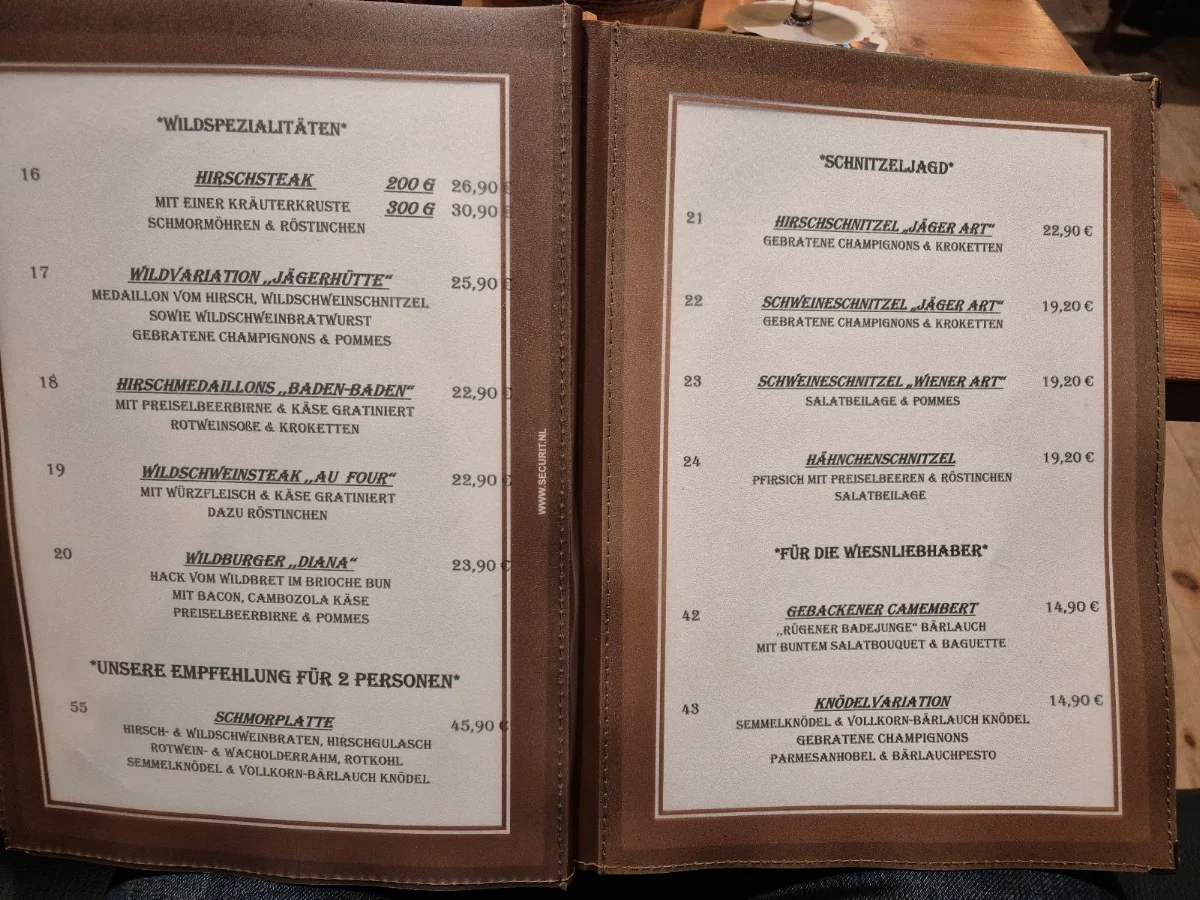 *WILDSPEZIALITÄTEN*
16 HIRSCHSTEAK 200 G 26,90 €
MIT EINER KRÄUTERKRUSTE 300 G 30,90 €
SCHMORMÖHREN & RÖSTINCHEN
17 WILDVARIATION „JÄGERHÜTTE“ 25,90 €
MEDAILLON VOM HIRSCH, WILDSCHWEINSCHNITZEL
SOWIE WILDSCHWEINBRATWURST
GEBRATENE CHAMPIGNONS & POMMES
18 HIRSCHMEDAILLONS „BADEN-BADEN“ 22,90 €
MIT PREISELBEERBIRNE & KÄSE GRATINIERT
ROTWEINSOßE & KROKETTEN
19 WILDSCHWEINSTEAK „AU FOUR“ 22,90 €
MIT WÜRZFLEISCH & KÄSE GRATINIERT
DAZU RÖSTINCHEN
20 WILDBURGER „DIANA“ 23,90 €
HACK VOM WILDBRET IM BRIOCHE BUN
MIT BACON, CAMBOZOLA KÄSE
PREISELBEERBIRNE & POMMES
*UNSERE EMPFEHLUNG FÜR 2 PERSONEN*
55 SCHMORPLATTE 45,90 €
HIRSCH- & WILDSCHWEINBRATEN, HIRSCHGULASCH
ROTWEIN- & WACHOLDERRAHM, ROTKOHL
SEMMELKNÖDEL & VOLLKORN-BÄRLAUCH KNÖDEL
WWW.SECURIT.NL
*SCHNITZELJAGD*
21 HIRSCHSCHNITZEL „JÄGER ART“ 22,90 €
GEBRATENE CHAMPIGNONS & KROKETTEN
22 SCHWEINESCHNITZEL „JÄGER ART“ 19,20 €
GEBRATENE CHAMPIGNONS & KROKETTEN
23 SCHWEINESCHNITZEL „WIENER ART“ 19,20 €
SALATBEILAGE & POMMES
24 HÄHNCHENSCHNITZEL 19,20 €
PFIRSICH MIT PREISELBEEREN & RÖSTINCHEN
SALATBEILAGE
*FÜR DIE WIESNLIEBHABER*
42 GEBACKENER CAMEMBERT 14,90 €
„RÜGENER BADEJUNGE“ BÄRLAUCH
MIT BUNTEM SALATBOUQUET & BAGUETTE
43 KNÖDELVARIATION 14,90 €
SEMMELKNÖDEL & VOLLKORN-BÄRLAUCH KNÖDEL
GEBRATENE CHAMPIGNONS
PARMESANHOBEL & BÄRLAUCHPESTO